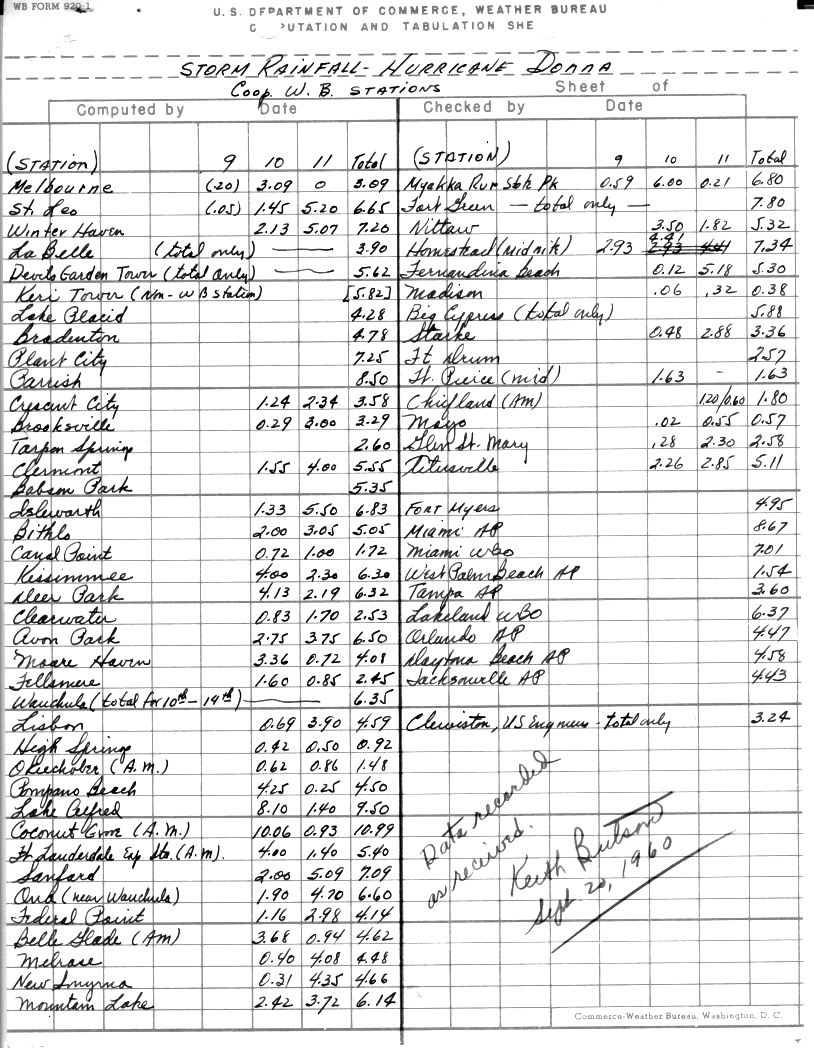 WB FORM 920-1
U. S. DEPARTMENT OF COMMERCE, WEATHER BUREAU
C PUTATION AND TABULATION SHE
STORM RAINFALL - HURRICANE DONNA
COOP. W. B. STATIONS Sheet of
Computed by Date Checked by Date
(STATION) 9 10 11 Total
Melbourne (.20) 3.09 0 3.09
St. Leo (.05) 1.45 5.20 6.65
Winter Haven 2.13 5.07 7.20
La Belle (total only) 3.90
Devils Garden Tower (total only) 5.62
Keri Tower (Non-WB station) [5.82]
Lake Placid 4.28
Bradenton 4.78
Plant City 7.25
Parrish 8.50
Crescent City 1.24 2.34 3.58
Brooksville 0.29 3.00 3.29
Tarpon Springs 2.60
Clermont 1.55 4.00 5.55
Babson Park 5.35
Isleworth 1.33 5.50 6.83
Bithlo 2.00 3.05 5.05
Canal Point 0.72 1.00 1.72
Kissimmee 4.00 2.30 6.30
Deer Park 4.13 2.19 6.32
Clearwater 0.83 1.70 2.53
Avon Park 2.75 3.75 6.50
Moore Haven 3.36 0.72 4.08
Fellsmere 1.60 0.85 2.45
Wauchula (total for 10th - 14th) 6.35
Lisbon 0.69 3.90 4.59
High Springs 0.42 0.50 0.92
Okeechobee (A.M.) 0.62 0.86 1.48
Pompano Beach 4.25 0.25 4.50
Lake Alfred 8.10 1.40 9.50
Coconut Grove (A.M.) 10.06 0.93 10.99
Ft. Lauderdale Exp Sta. (A.M.) 4.00 1.40 5.40
Sanford 2.00 5.09 7.09
Ona (near Wauchula) 1.90 4.70 6.60
Federal Point 1.16 2.98 4.14
Belle Glade (AM) 3.68 0.94 4.62
Melrose 0.40 4.08 4.48
New Smyrna 0.31 4.35 4.66
Mountain Lake 2.42 3.72 6.14
(STATION) 9 10 11 Total
Myakka Run Stk Pk 0.59 6.00 0.21 6.80
Fort Green - total only - 7.80
Nittaw 3.50 1.82 5.32
Homestead (midnite) 2.93 4.41 7.34
Fernandina Beach 0.12 5.18 5.30
Madison .06 .32 0.38
Big Cypress (total only) 5.88
Starke 0.48 2.88 3.36
Ft Drum 2.57
Ft. Pierce (mid) 1.63 - 1.63
Chiefland (AM) 1.20/0.60 1.80
Mayo .02 0.55 0.57
Glen St. Mary .28 2.30 2.58
Titusville 2.26 2.85 5.11
FORT Myers 4.95
Miami AP 8.67
Miami WBO 7.01
West Palm Beach AP 1.54
Tampa AP 3.60
Lakeland WBO 6.37
Orlando AP 4.47
Daytona Beach AP 4.58
Jacksonville AP 4.43
Clewiston, US Engineers - total only 3.24
Data recorded
as received.
Keith Butson
Sept 20, 1960
Commerce-Weather Bureau, Washington, D. C.